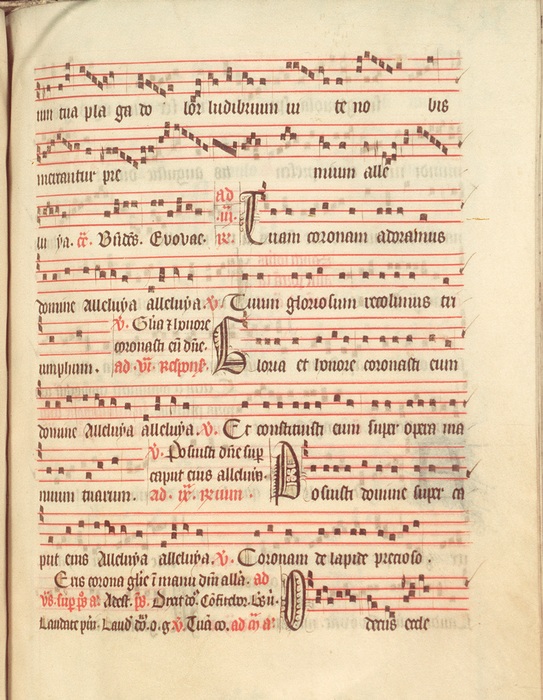 tua pla ga do lor ludibrium te no bis
mereantur pre mium alle
lu ya. Bn̄dc̄s. Evovae. ad iii. Tuam coronam adoramus
domine Alleluya alleluya. v̄. Tuum gloriosum recolimus tri
v̄. Gl̄ia ⁊ honore
coronasti eū dn̄e.
umphum. ad vi. Respons̄. Gloria et honore coronasti eum
domine Alleluya alleluya. v̄. Et constituisti eum super opera ma
v̄. Posuisti dn̄e sup
caput eius alleluia.
nuum tuarum. ad. ix. Posuisti domine super ca
put eius Alleluya alleluya. v̄. Coronam de lapide precioso.
Eius corona gl̄ie ī manu dn̄i all̄a. ad
decus eccle